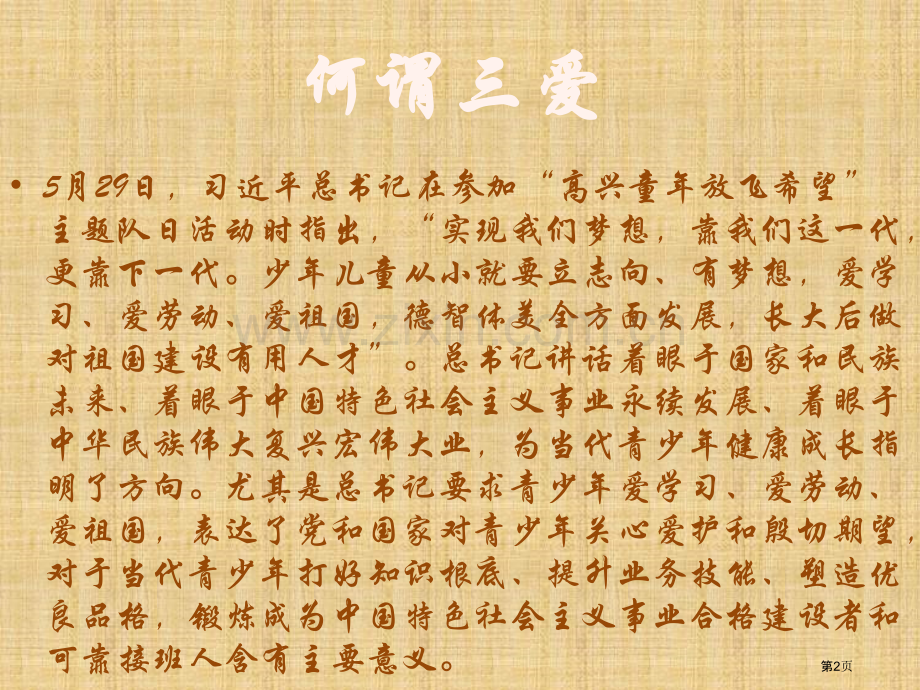 何谓三爱
• 5月29日，习近平总书记在参加“高兴童年放飞希望”
主题队日活动时指出，“实现我们梦想，靠我们这一代，
更靠下一代。少年儿童从小就要立志向、有梦想，爱学
习、爱劳动、爱祖国，德智体美全方面发展，长大后做
对祖国建设有用人才”。总书记讲话着眼于国家和民族
未来、着眼于中国特色社会主义事业永续发展、着眼于
中华民族伟大复兴宏伟大业，为当代青少年健康成长指
明了方向。尤其是总书记要求青少年爱学习、爱劳动、
爱祖国，表达了党和国家对青少年关心爱护和殷切期望，
对于当代青少年打好知识根底、提升业务技能、塑造优
良品格，锻炼成为中国特色社会主义事业合格建设者和
可靠接班人含有主要意义。
第2页